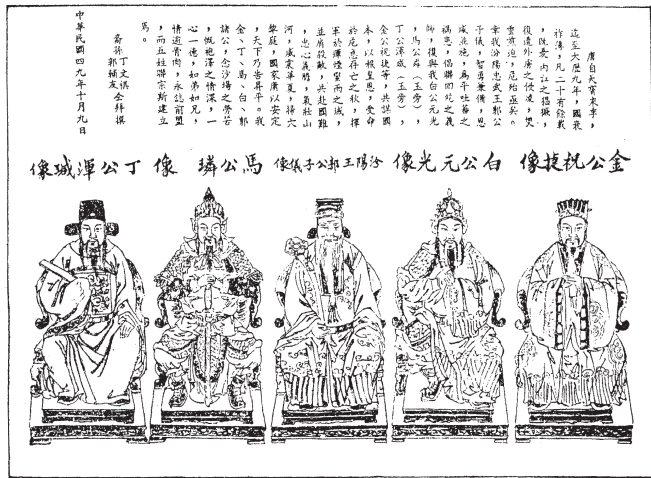 唐自天寶末季，
迄至大歷九年，國衰
祚薄，凡二十有餘載
，既憂內訌之猖獗，
復遭外虜之侵凌，燹
熏煎迫，危殆亟矣。
幸我汾陽忠武王郭公
子儀，智勇兼備，恩
威并施，為平吐蕃之
禍患，倡聯回紇之義
師，復與我白公元光
，馬公璘（玉旁），
丁公渾瑊（玉旁），
金公祝捷等，共謀國
本，以報皇恩，受命
於危急存亡之秋，揮
軍於煙雨之域，
並肩殺敵，共赴國難
，忠心義膽，氣壯山
河，威震華夏，掃穴
犂庭，國家賡以安定
，天下乃告昇平。我
金、丁、馬、白、郭
諸公，念沙場之勞苦
，慨袍澤之情深，一
心一德，如弟如兄，
情逾骨肉，永誌前盟
，而五姓聯宗斯建立
焉。
裔孫 丁文祺 郭輔友 仝拜撰
中華民國四九年十月九日
金公祝捷像
白公元光像
汾陽王郭公子儀像
馬公璘像
丁公渾瑊像